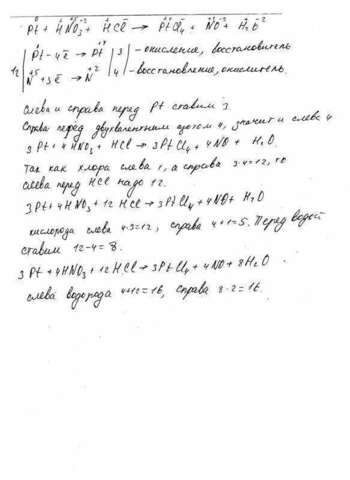 Pt⁰ + H⁺N⁺⁵O₃⁻² + H⁺Cl⁻ → Pt⁺⁴Cl₄⁻ + N⁺²O⁻² + H₂⁺O⁻²
12 | Pt⁰ - 4ē → Pt⁺⁴ | 3 | - окисление, восстановитель
N⁺⁵ + 3ē → N⁺² | 4 | - восстановление, окислитель.
Слева и справа перед Pt ставим 3.
Справа перед двухвалентным азотом 4, значит и слева 4
3Pt + 4HNO₃ + HCl → 3PtCl₄ + 4NO + H₂O.
Так как хлора слева 1, а справа 3·4=12, то
слева перед HCl надо 12.
3Pt + 4HNO₃ + 12HCl → 3PtCl₄ + 4NO + H₂O
кислорода слева 4·3=12, справа 4+1=5. Перед водой
ставим 12-4=8.
3Pt + 4HNO₃ + 12HCl → 3PtCl₄ + 4NO + 8H₂O.
слева водорода 4+12=16, справа 8·2=16.